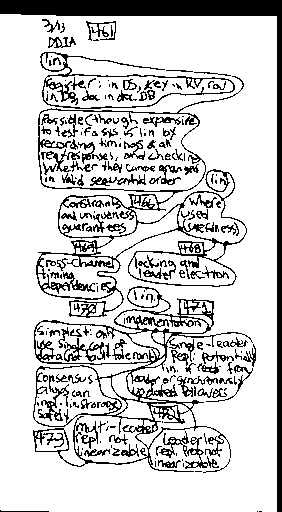 3/13 461
DDIA
lin.
register: in DS, key in KV, row
in DB, doc in doc. DB
Possible (though expensive
to test if a sys is lin by
recording timings of all
req/responses, and checking
whether they can be arranged
in valid sequential order
lin.
466
Constraints
and uniqueness
guarantees
where
used
468
Cross-Channel
timing
dependencies
locking and
leader election
lin.
implementation
471
Simplest:
use single copy of
data (not fault tolerant)
Single-leader
repl: potentially
lin. if read from
leader or synchronously
updated followers
Consensus
algos can
impl. lin. storage
safely
473
multi-leader
repl. not
linearizable
Leaderless
repl. prob not
linearizable